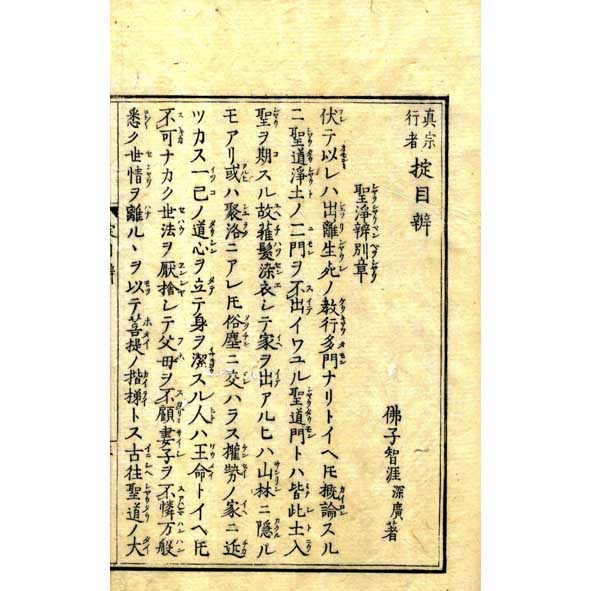 真宗行者 掟目辨
佛子智涯深廣著
聖淨辨別章
伏テ以レハ出離生死ノ教行多門ナリトイヘ𪜈概論スル
ニ聖道淨土ノ二門ヲ不出イワユル聖道門トハ皆此土入
聖ヲ期スル故薙髮染衣シテ家ヲ出アルヒハ山林ニ隱ル
モアリ或ハ聚洛ニアレ𪜈俗塵ニ交ハラス權勢ノ家ニ近
ツカス一己ノ道心ヲ立テ身ヲ潔スル人ハ王命トイヘ𪜈
不可ナカク世法ヲ厭捨シテ父母ヲ不顧妻子ヲ不憐万般
悉ク世情ヲ離ルヽヲ以テ菩提ノ揩梯トス古往聖道ノ大